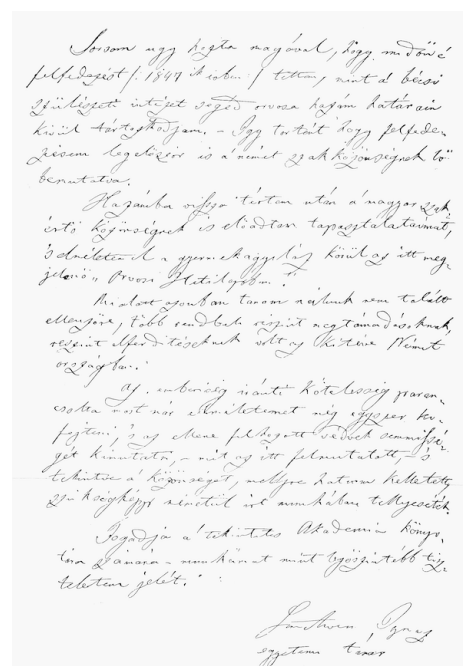 Sorsom ugy hozta magával, hogy midőn é
felfedezést /: 1847 ik évben :/ tettem, mint a' bécsi
szülészeti intézet segéd orvosa hazám határain
kivül tartozkodjam. – Igy történt hogy felfede-
zésem legelőször is a német szakközönségnek lő
bemutatva.
Hazámba vissza tértem után a' magyar szak
értő közönségnek is előadtam tapasztalataimat,
's elméletemet a gyermekágyi láz körül az itt meg-
jelenő „Orvosi Hetilapban."
Mialatt azonban tanom nálunk nem talált
ellenzőre, több rendbeli részint megtámadásoknak,
részint elferditéseknek volt az kitéve Német
országban.
Az emberiség iránti kötelesség paran-
csolta most már elméletemet még egyszer ki
fejteni, 's az ellene felhozott vádok semmissé-
gét kimutatni, – mit az itt felmutatott, – 's
tekintve a' közönséget, mellyre hatnom kelletett,
szükségképp németül irt munkában teljesiték.
Fogadja a' tekintetes Akademia könyv-
tára számára – munkámat mint legőszintébb tisz-
teletem jelét.
Ignaz
egyetemi tanár